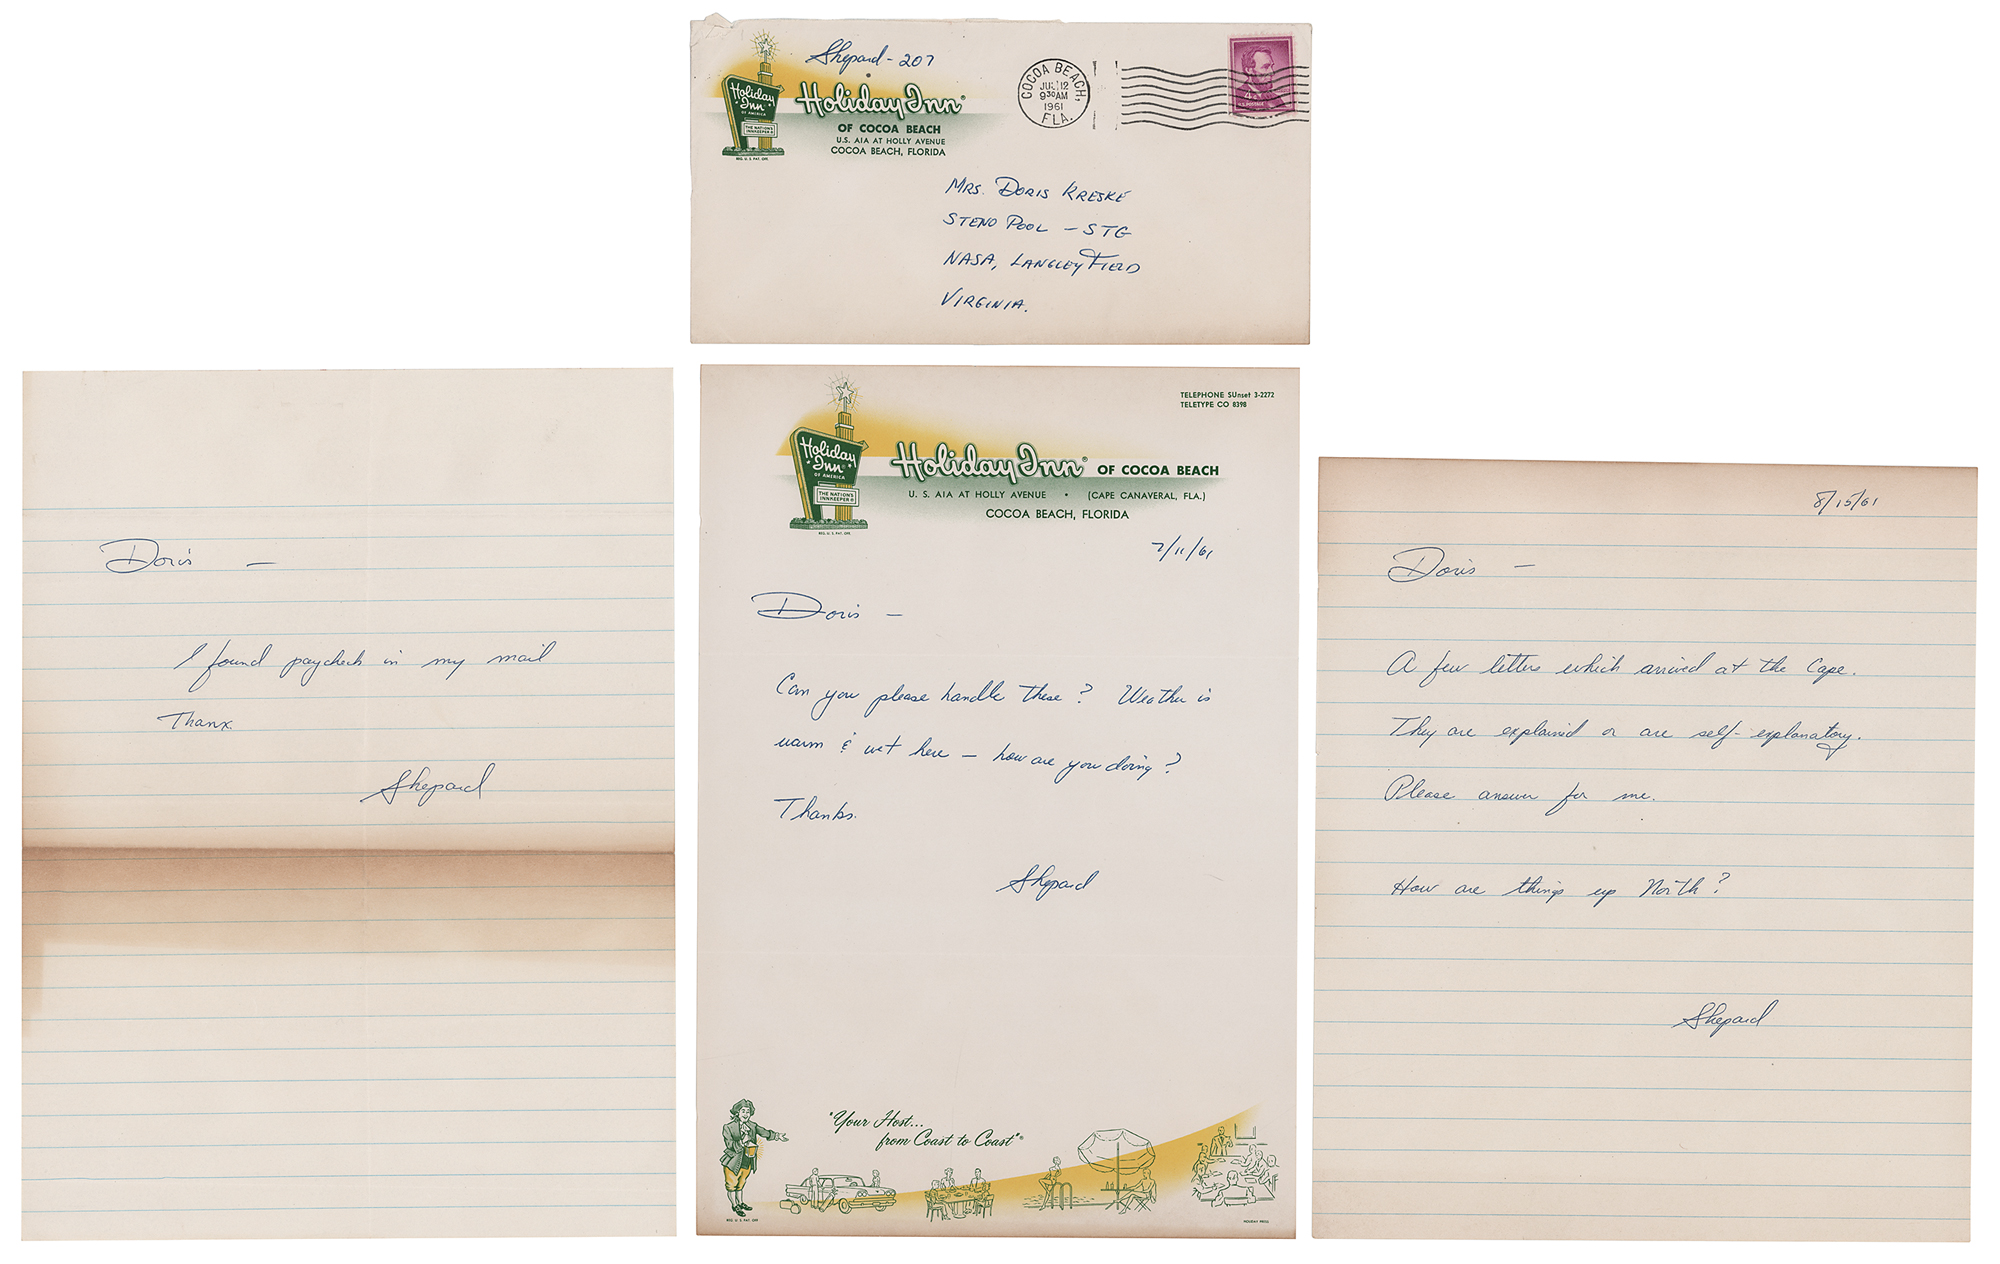 Shepard - 207
Holiday Inn
OF AMERICA
THE NATION'S
INNKEEPER
REG. U. S. PAT. OFF.
Holiday Inn®
OF COCOA BEACH
U.S. A1A AT HOLLY AVENUE
COCOA BEACH, FLORIDA
COCOA BEACH,
JUL 12
9 30 AM
1961
FLA.
4¢
U.S. POSTAGE
MRS. DORIS KRESKE
STENO POOL - STG
NASA, LANGLEY FIELD
VIRGINIA.
Doris —
I found paycheck in my mail
Thanx.
Shepard
TELEPHONE SUnset 3-2272
TELETYPE CO 8398
Holiday Inn
OF AMERICA
THE NATION'S
INNKEEPER
REG. U. S. PAT. OFF.
Holiday Inn® OF COCOA BEACH
U. S. A1A AT HOLLY AVENUE • (CAPE CANAVERAL, FLA.)
COCOA BEACH, FLORIDA
7/11/61
Doris —
Can you please handle these? Weather is
warm & wet here — how are you doing?
Thanks.
Shepard
"Your Host...
from Coast to Coast"®
REG. U. S. PAT. OFF.
HOLIDAY PRESS
8/15/61
Doris —
A few letters which arrived at the Cape.
They are explained or are self-explanatory.
Please answer for me.
How are things up North?
Shepard